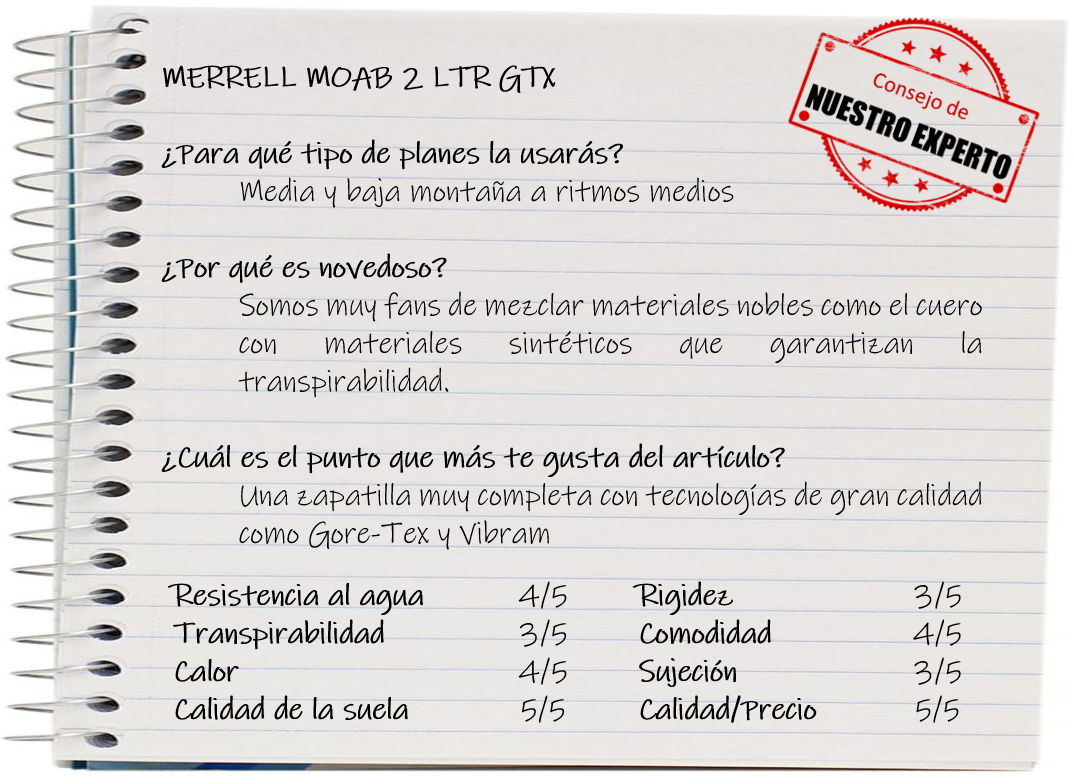 MERRELL MOAB 2 LTR GTX
Consejo de
NUESTRO EXPERTO
¿Para qué tipo de planes la usarás?
Media y baja montaña a ritmos medios
¿Por qué es novedoso?
Somos muy fans de mezclar materiales nobles como el cuero
con materiales sintéticos que garantizan la
transpirabilidad.
¿Cuál es el punto que más te gusta del artículo?
Una zapatilla muy completa con tecnologías de gran calidad
como Gore-Tex y Vibram
Resistencia al agua 4/5 Rigidez 3/5
Transpirabilidad 3/5 Comodidad 4/5
Calor 4/5 Sujeción 3/5
Calidad de la suela 5/5 Calidad/Precio 5/5